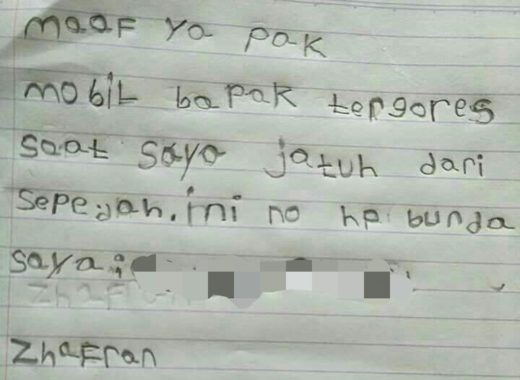 maaf ya pak
mobil bapak tergores
saat saya jatuh dari
sepedah. ini no hp bunda
saya :
Zhafran